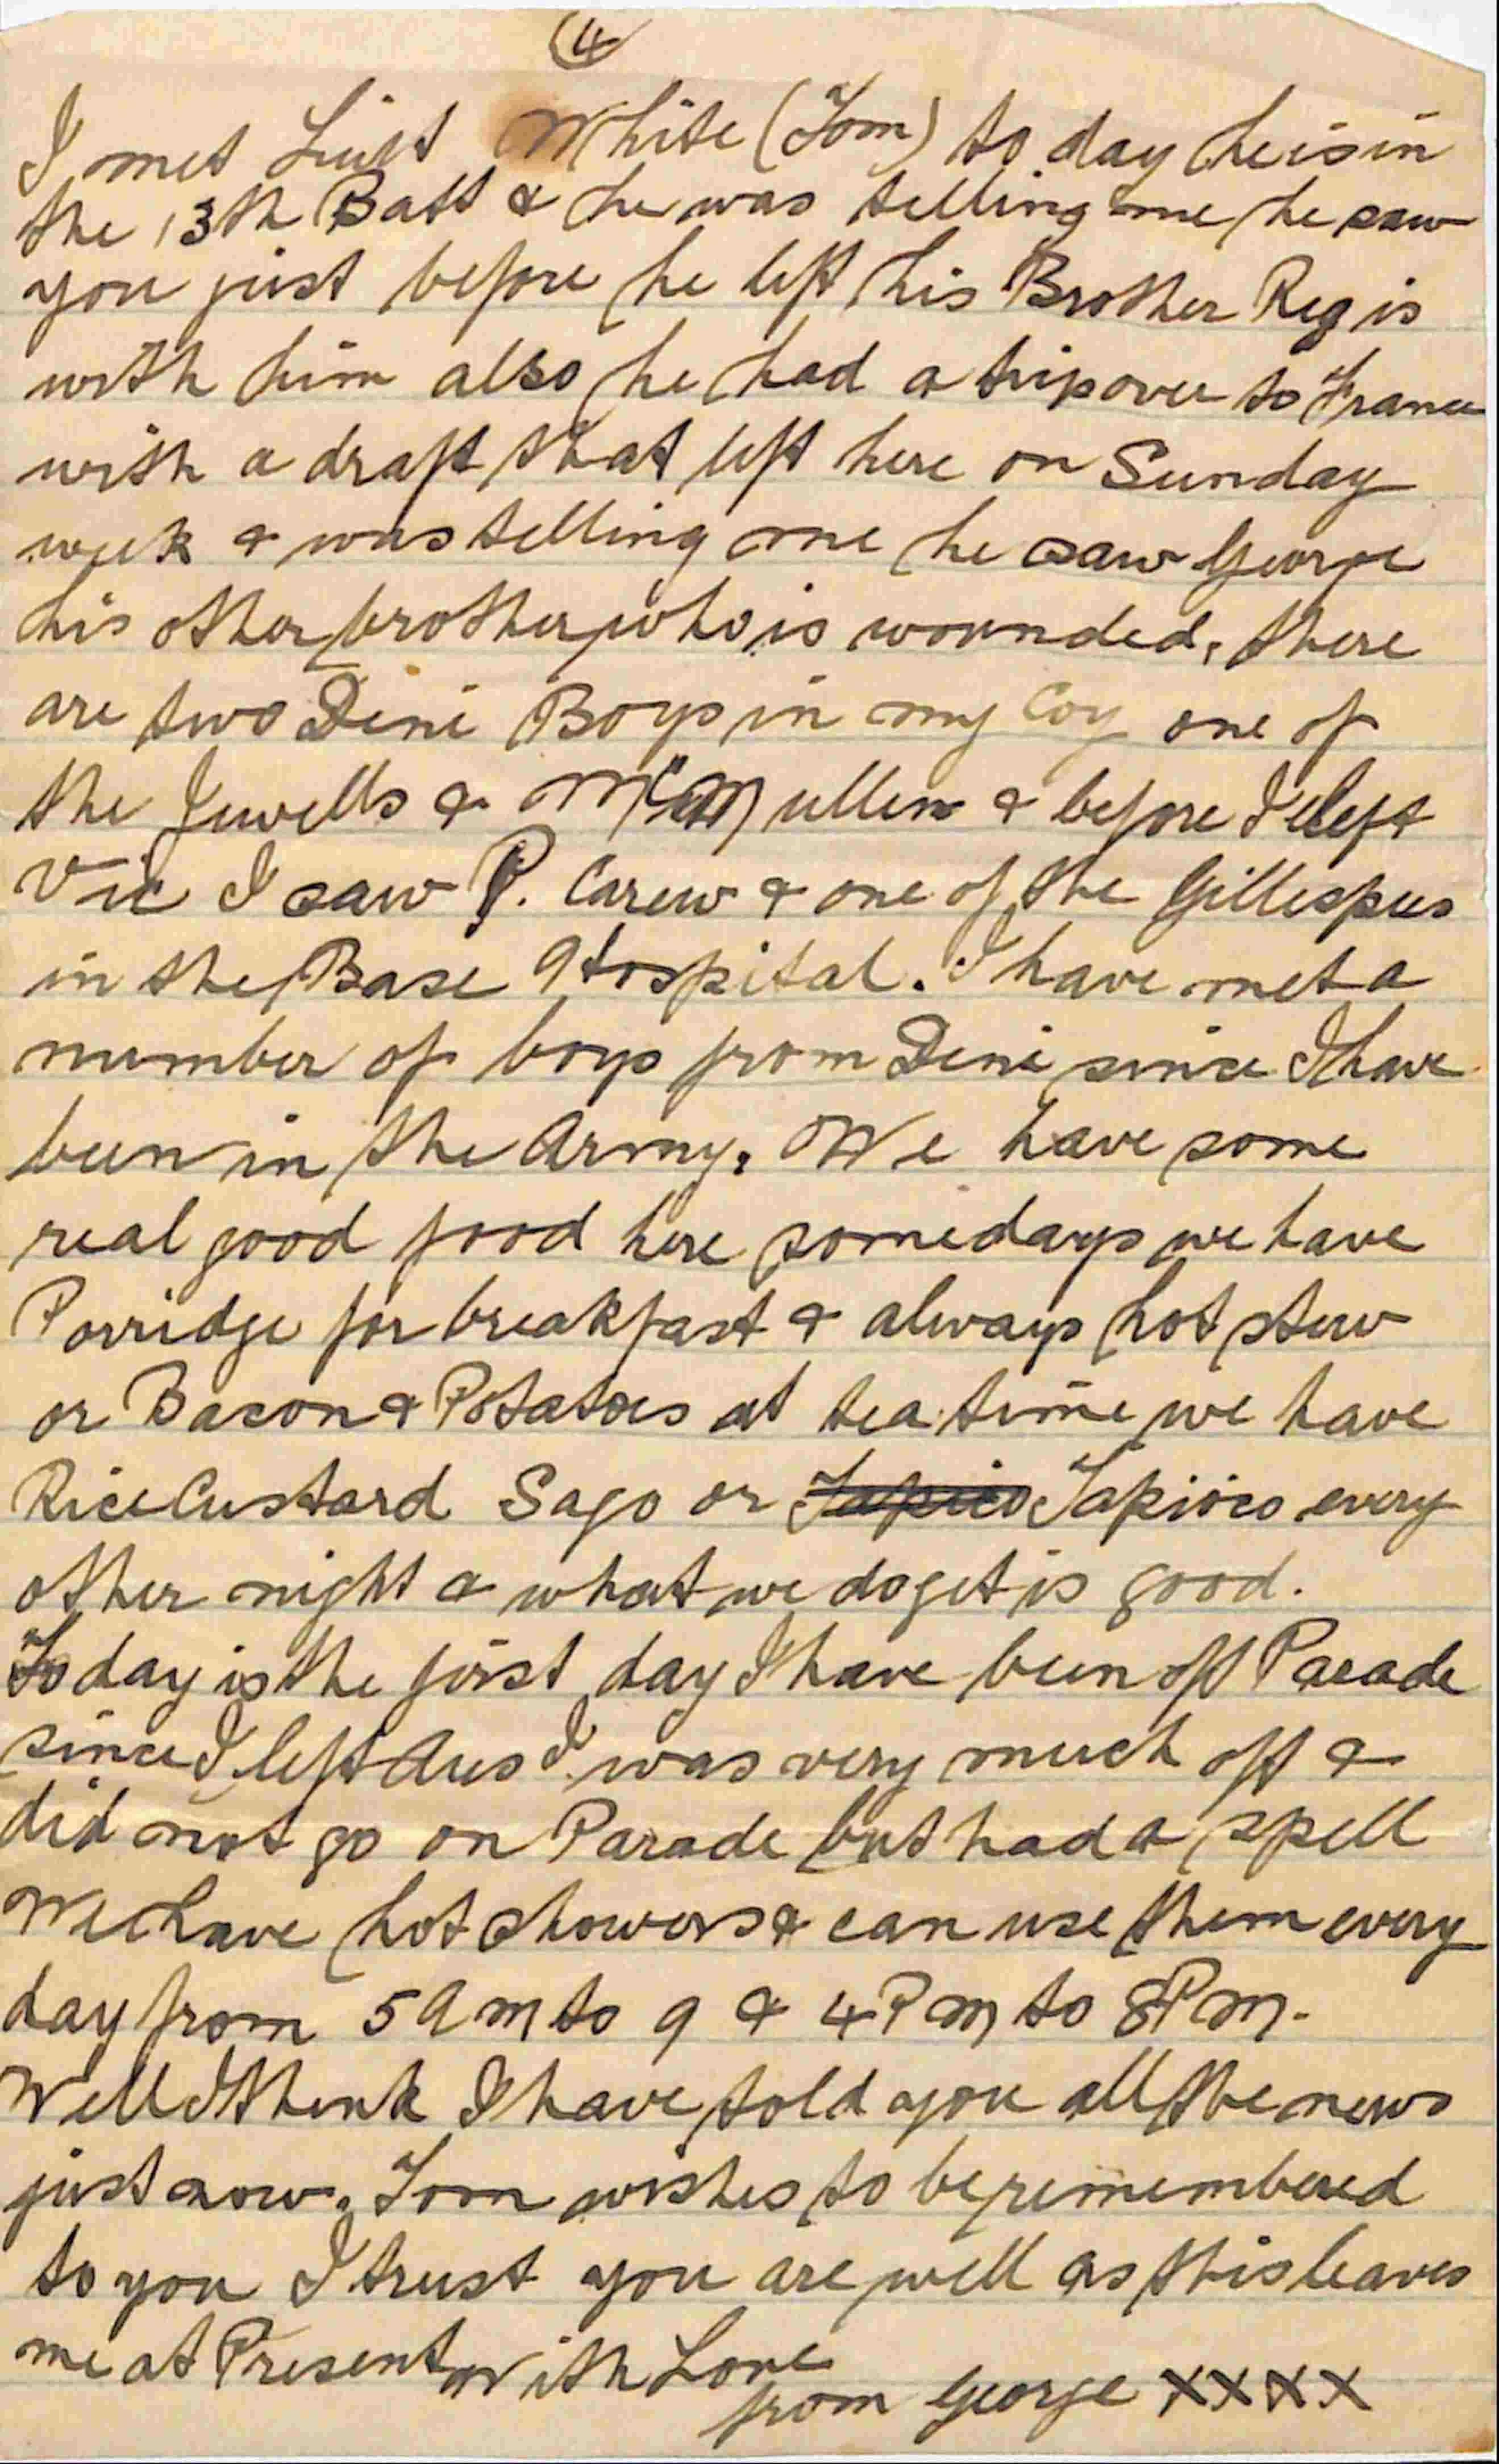 4
I met Lieut White (Tom) to day he is in
the 13th Batt & he was telling me he saw
you just before he left his Brother Reg is
with him also he had a trip over to France
with a draft that left here on Sunday
week & was telling me he saw George
his other brother who is wounded, there
are two Deni Boys in my Coy one of
the Jewells & McMullen & before I left
Vic I saw P. Carew & one of the Gillespies
in the Base Hospital. I have met a
number of boys from Deni since I have
been in the Army. We have some
real good food here some days we have
Porridge for breakfast & always hot stew
or Bacon & Potatoes at tea time we have
Rice Custard Sago or Tapico Tapioco every
other night & what we do get is good.
To day is the first day I have been off Parade
since I left Aus I was very much off &
did not go on Parade but had a spell
We have hot showers & can use them every
day from 5 Am to 9 & 4 Pm to 8 Pm.
Well I think I have told you all the news
just now. Tom wishes to be remembered
to you I trust you are well as this leaves
me at Present With Love
from George xxxx